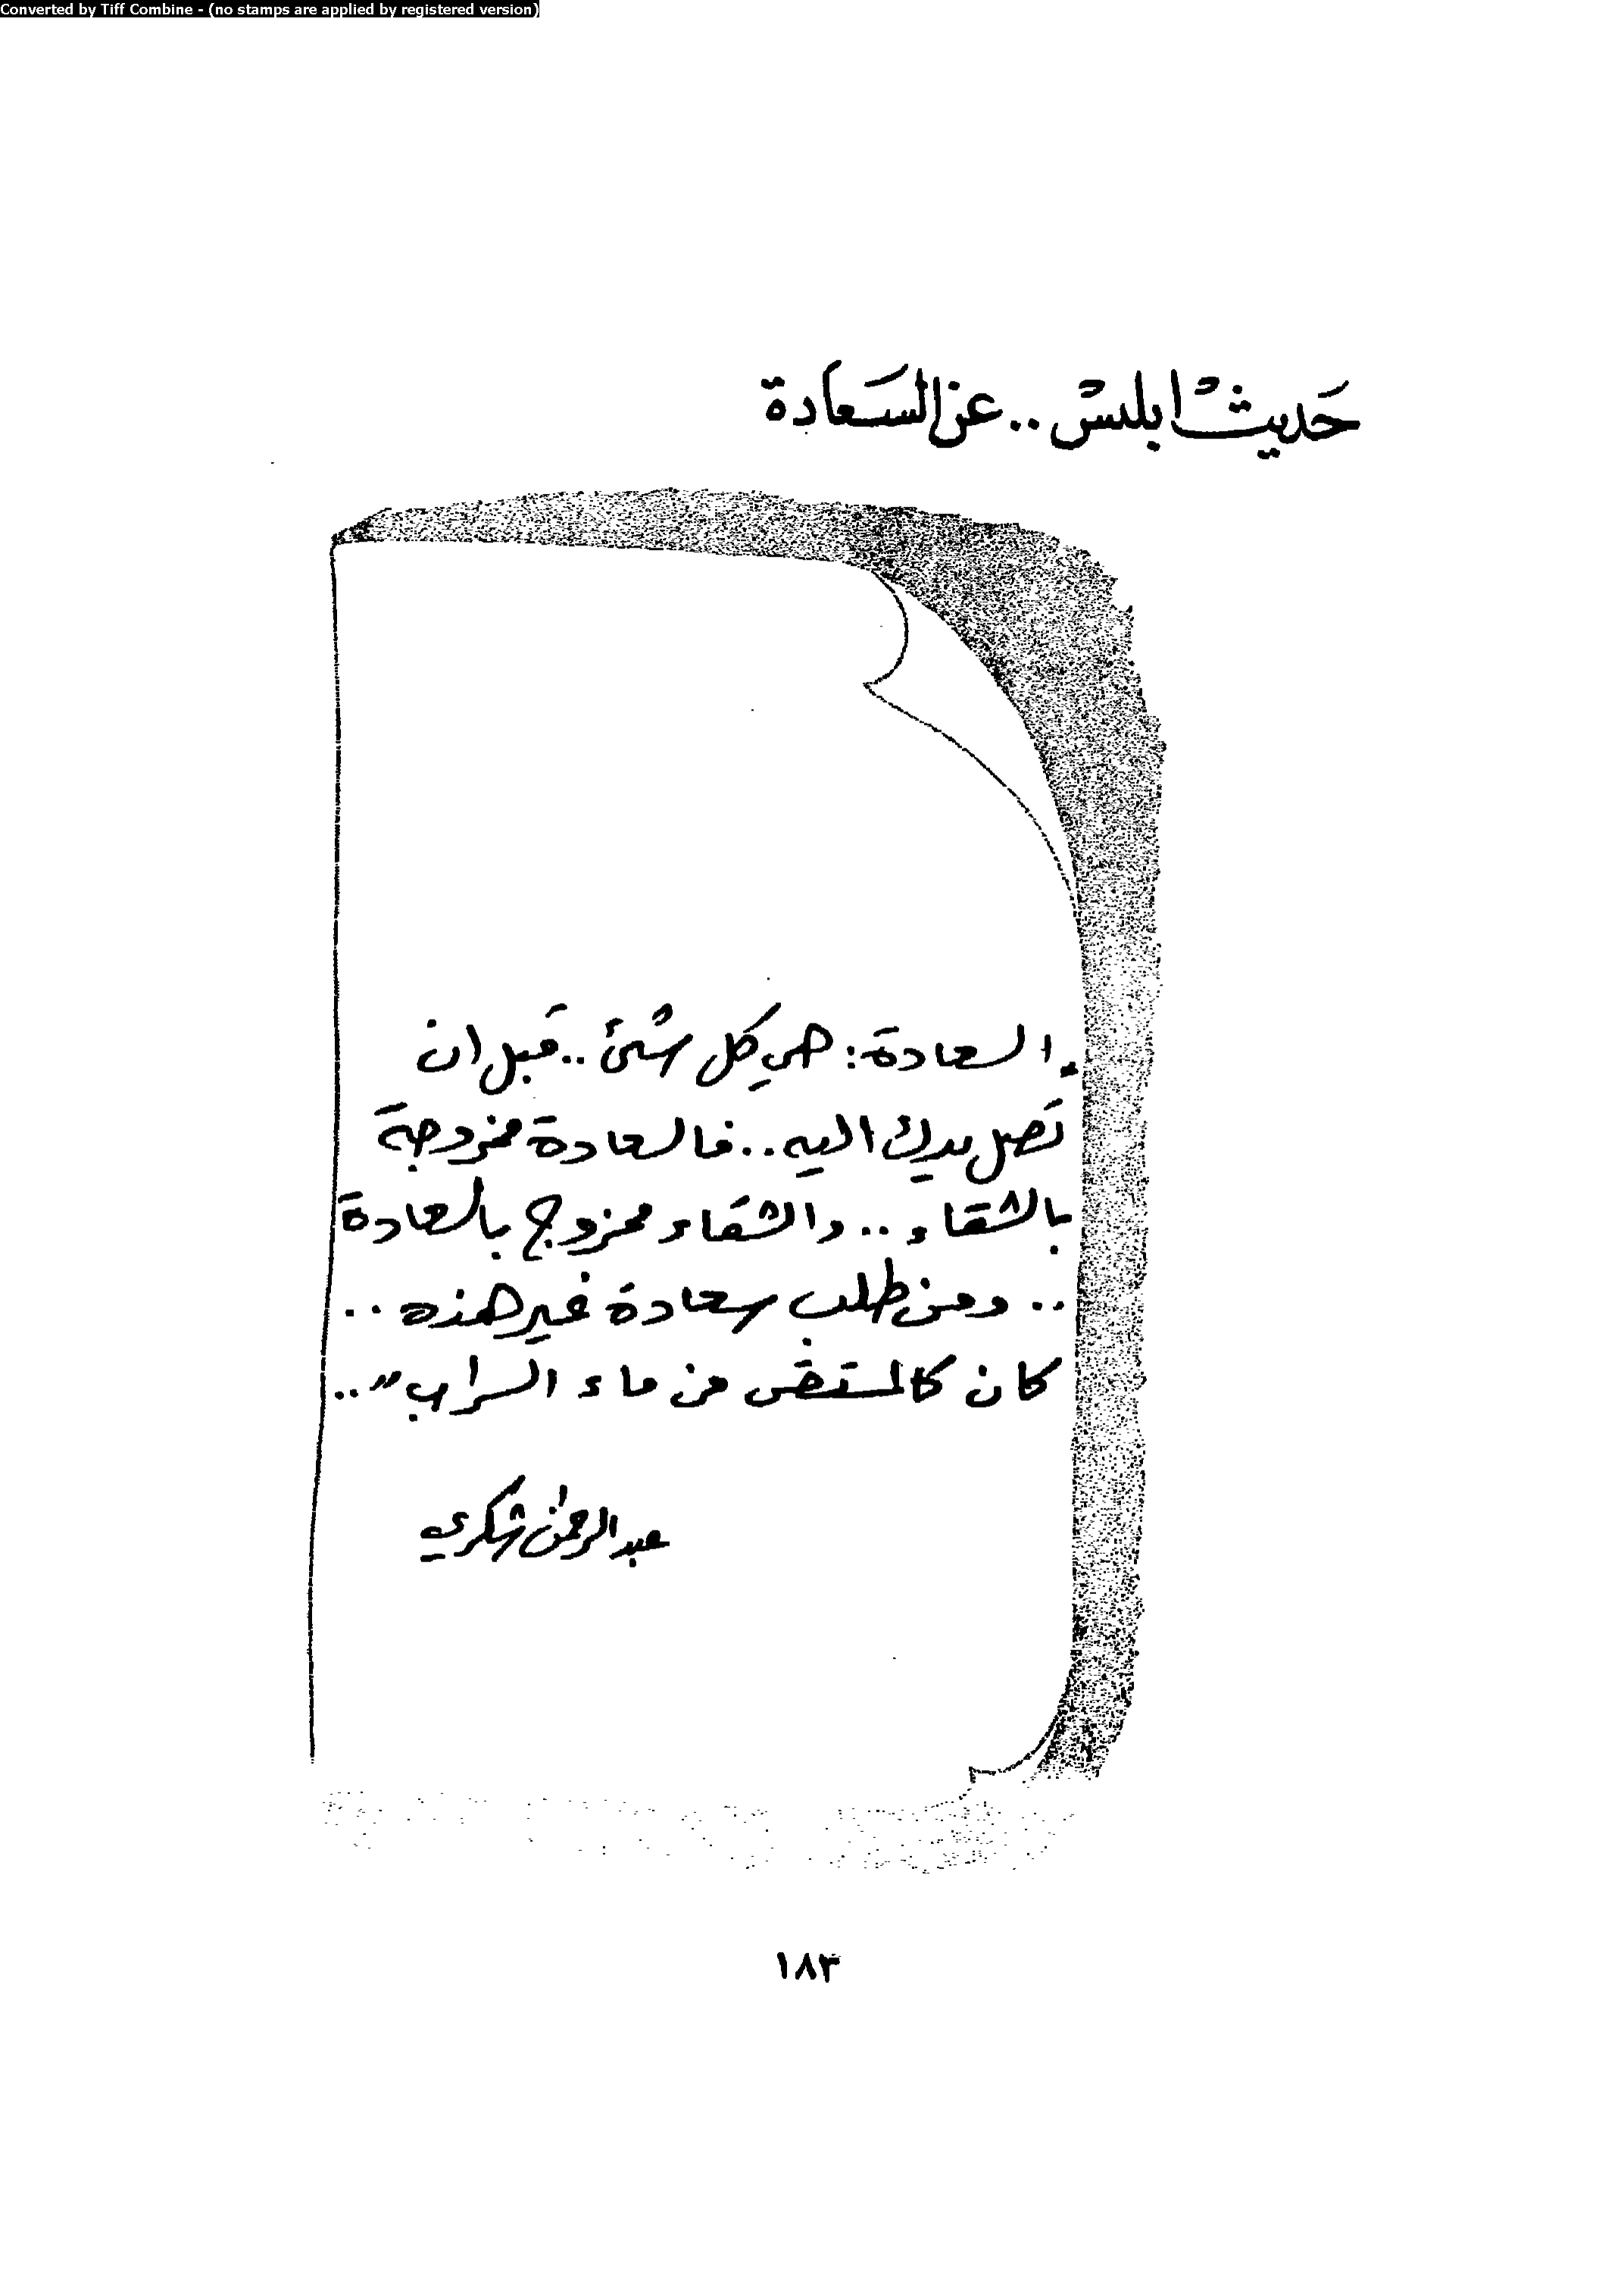 Converted by Tiff Combine - (no stamps are applied by registered version)
حديث ابليس .. عن السعادة
"السعادة: هي كل شئ .. قبل ان
تصل يدك اليه .. فالسعادة ممزوجة
بالشقاء .. والشقاء ممزوج بالسعادة
.. ومن طلب سعادة غير هذه ..
كان كالمستقى من ماء السراب" ..
عبد الرحمن شكري
١٨٣